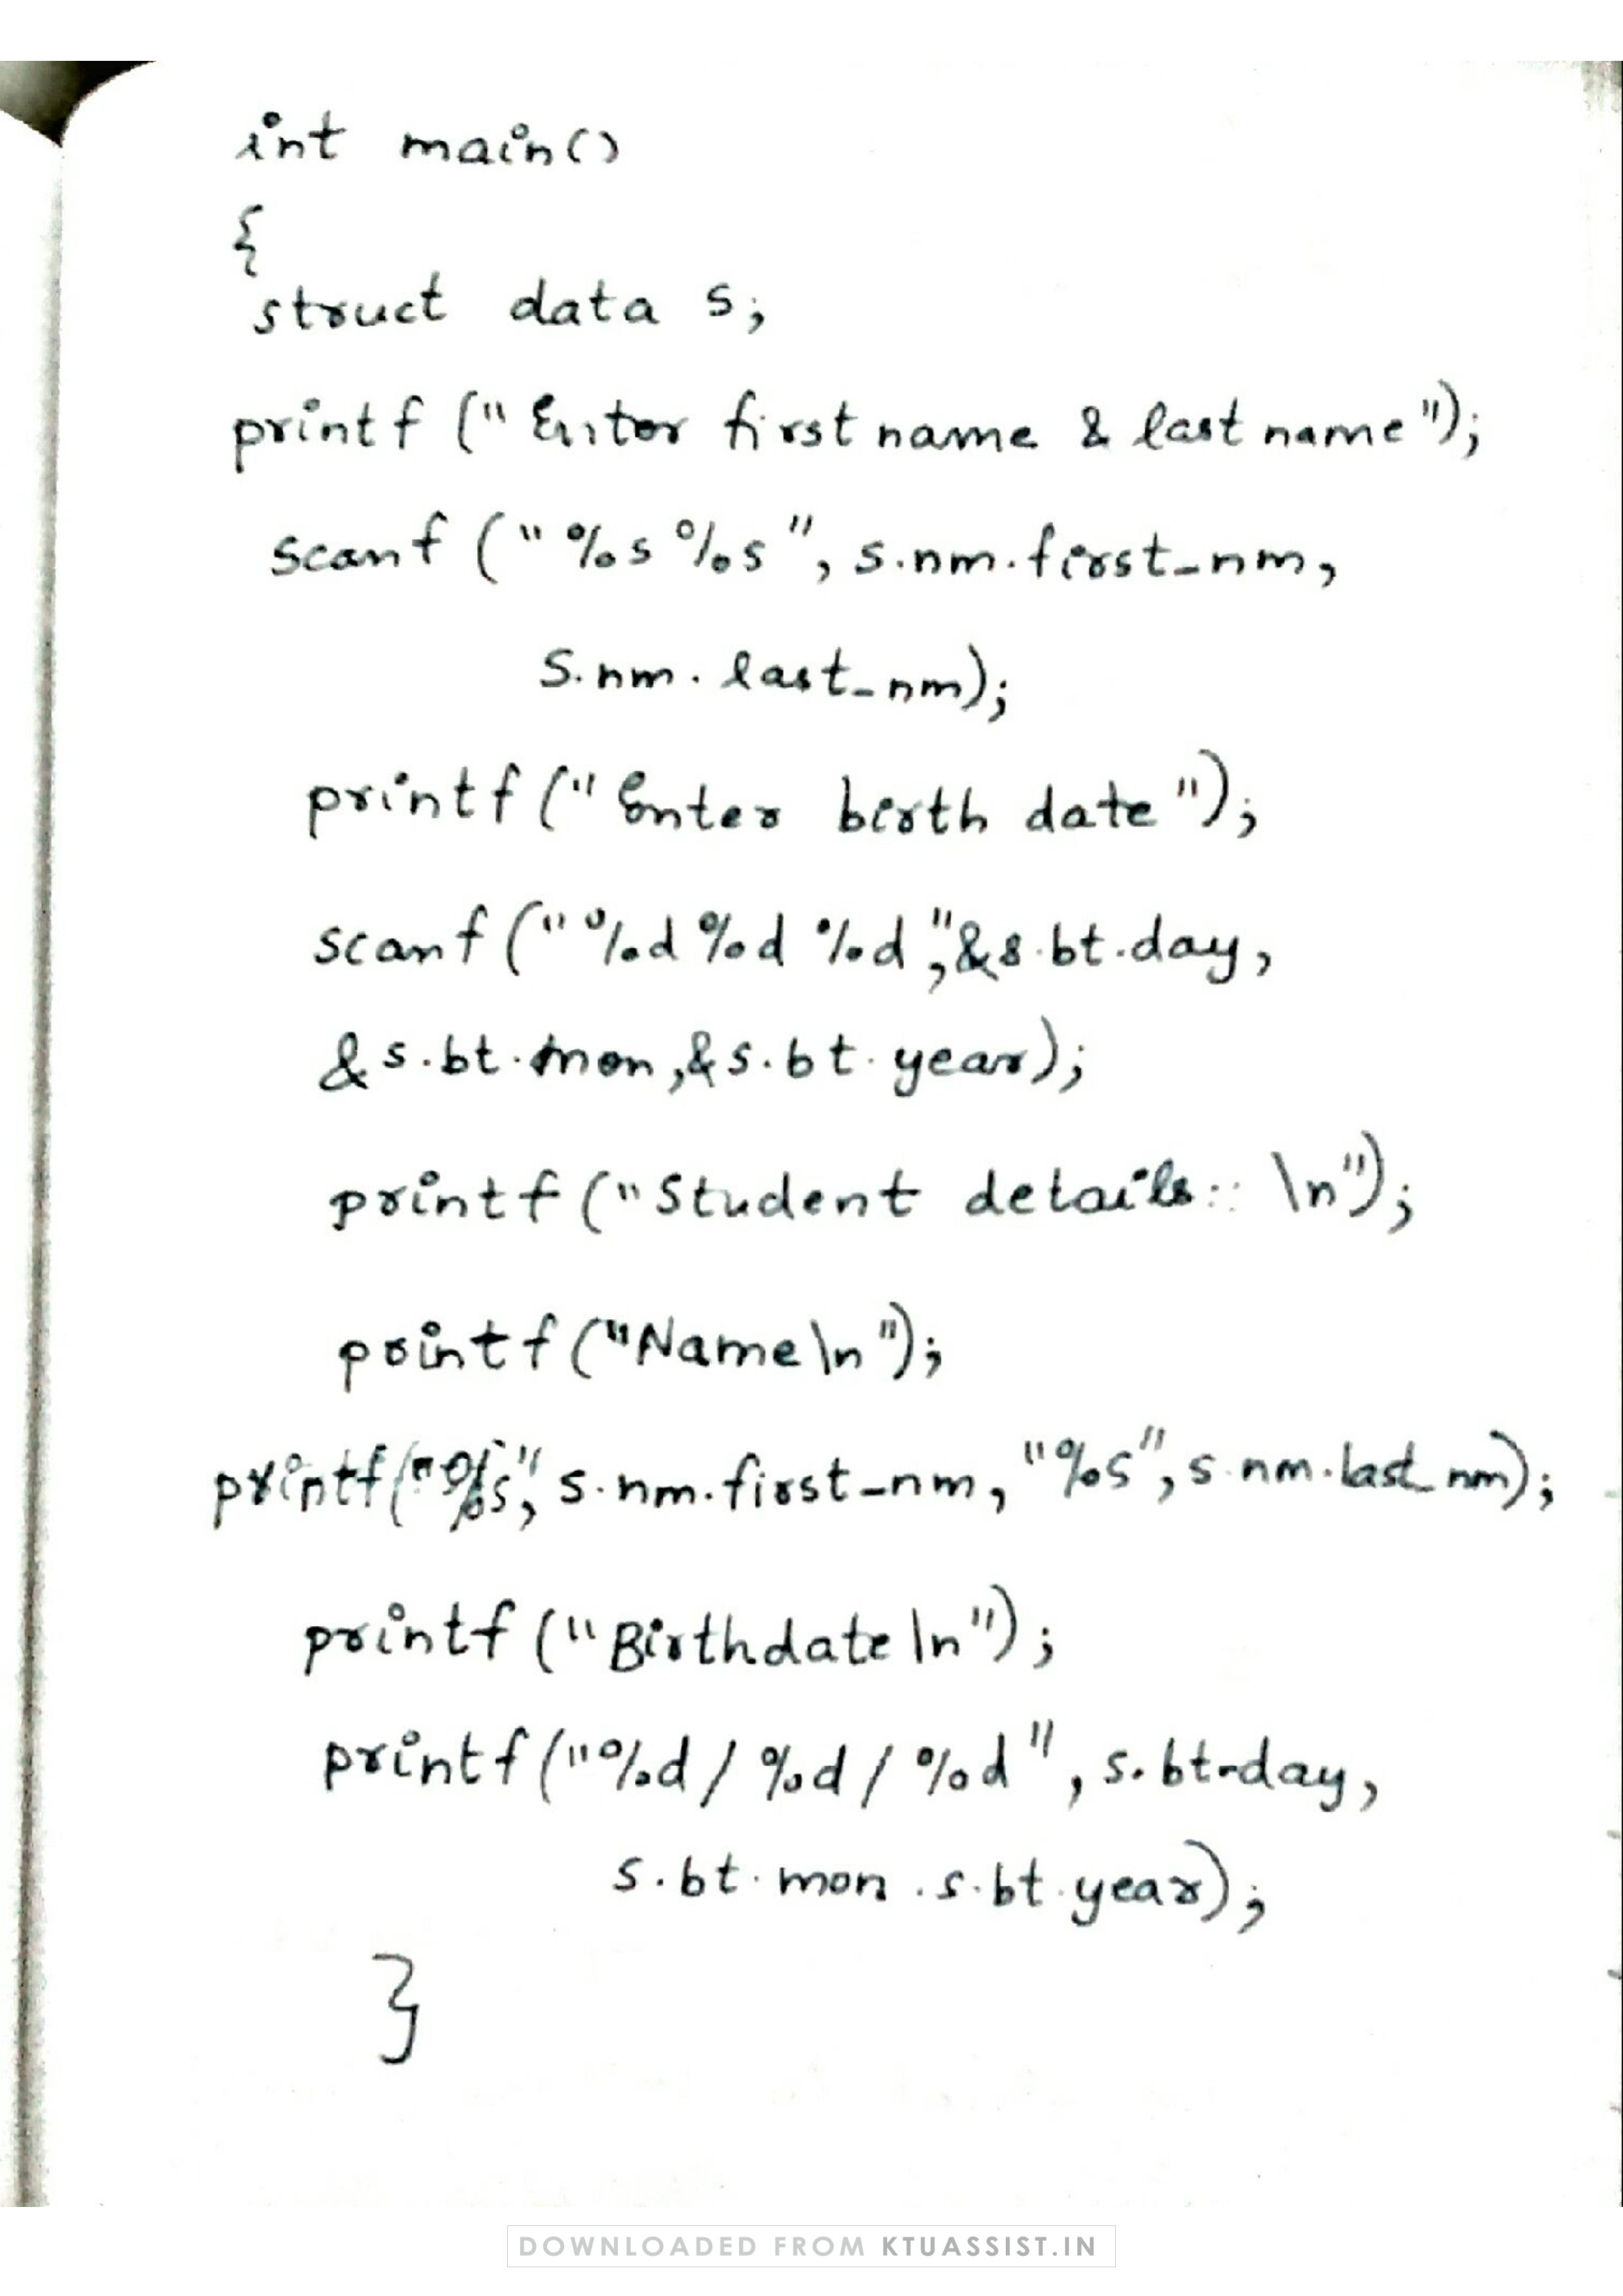 int main()
{
struct data s;
printf ("Enter first name & last name");
scanf ("%s %s", s.nm.first_nm,
s.nm.last_nm);
printf ("Enter birth date");
scanf ("%d %d %d", &s.bt.day,
&s.bt.mon, &s.bt.year);
printf ("Student details:: \n");
printf ("Name\n");
printf("%s", s.nm.first_nm, "%s", s.nm.last_nm);
printf ("Birthdate \n");
printf ("%d / %d / %d", s.bt.day,
s.bt.mon . s.bt.year);
}
DOWNLOADED FROM KTUASSIST.IN